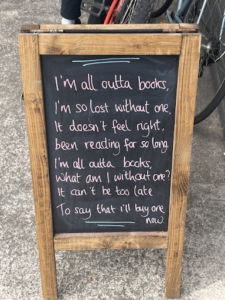 I'm all outta books,
I'm so lost without one,
It doesn't feel right,
been reading for so long.
I'm all outta books,
what am I without one?
It can't be too late
To say that i'll buy one
now